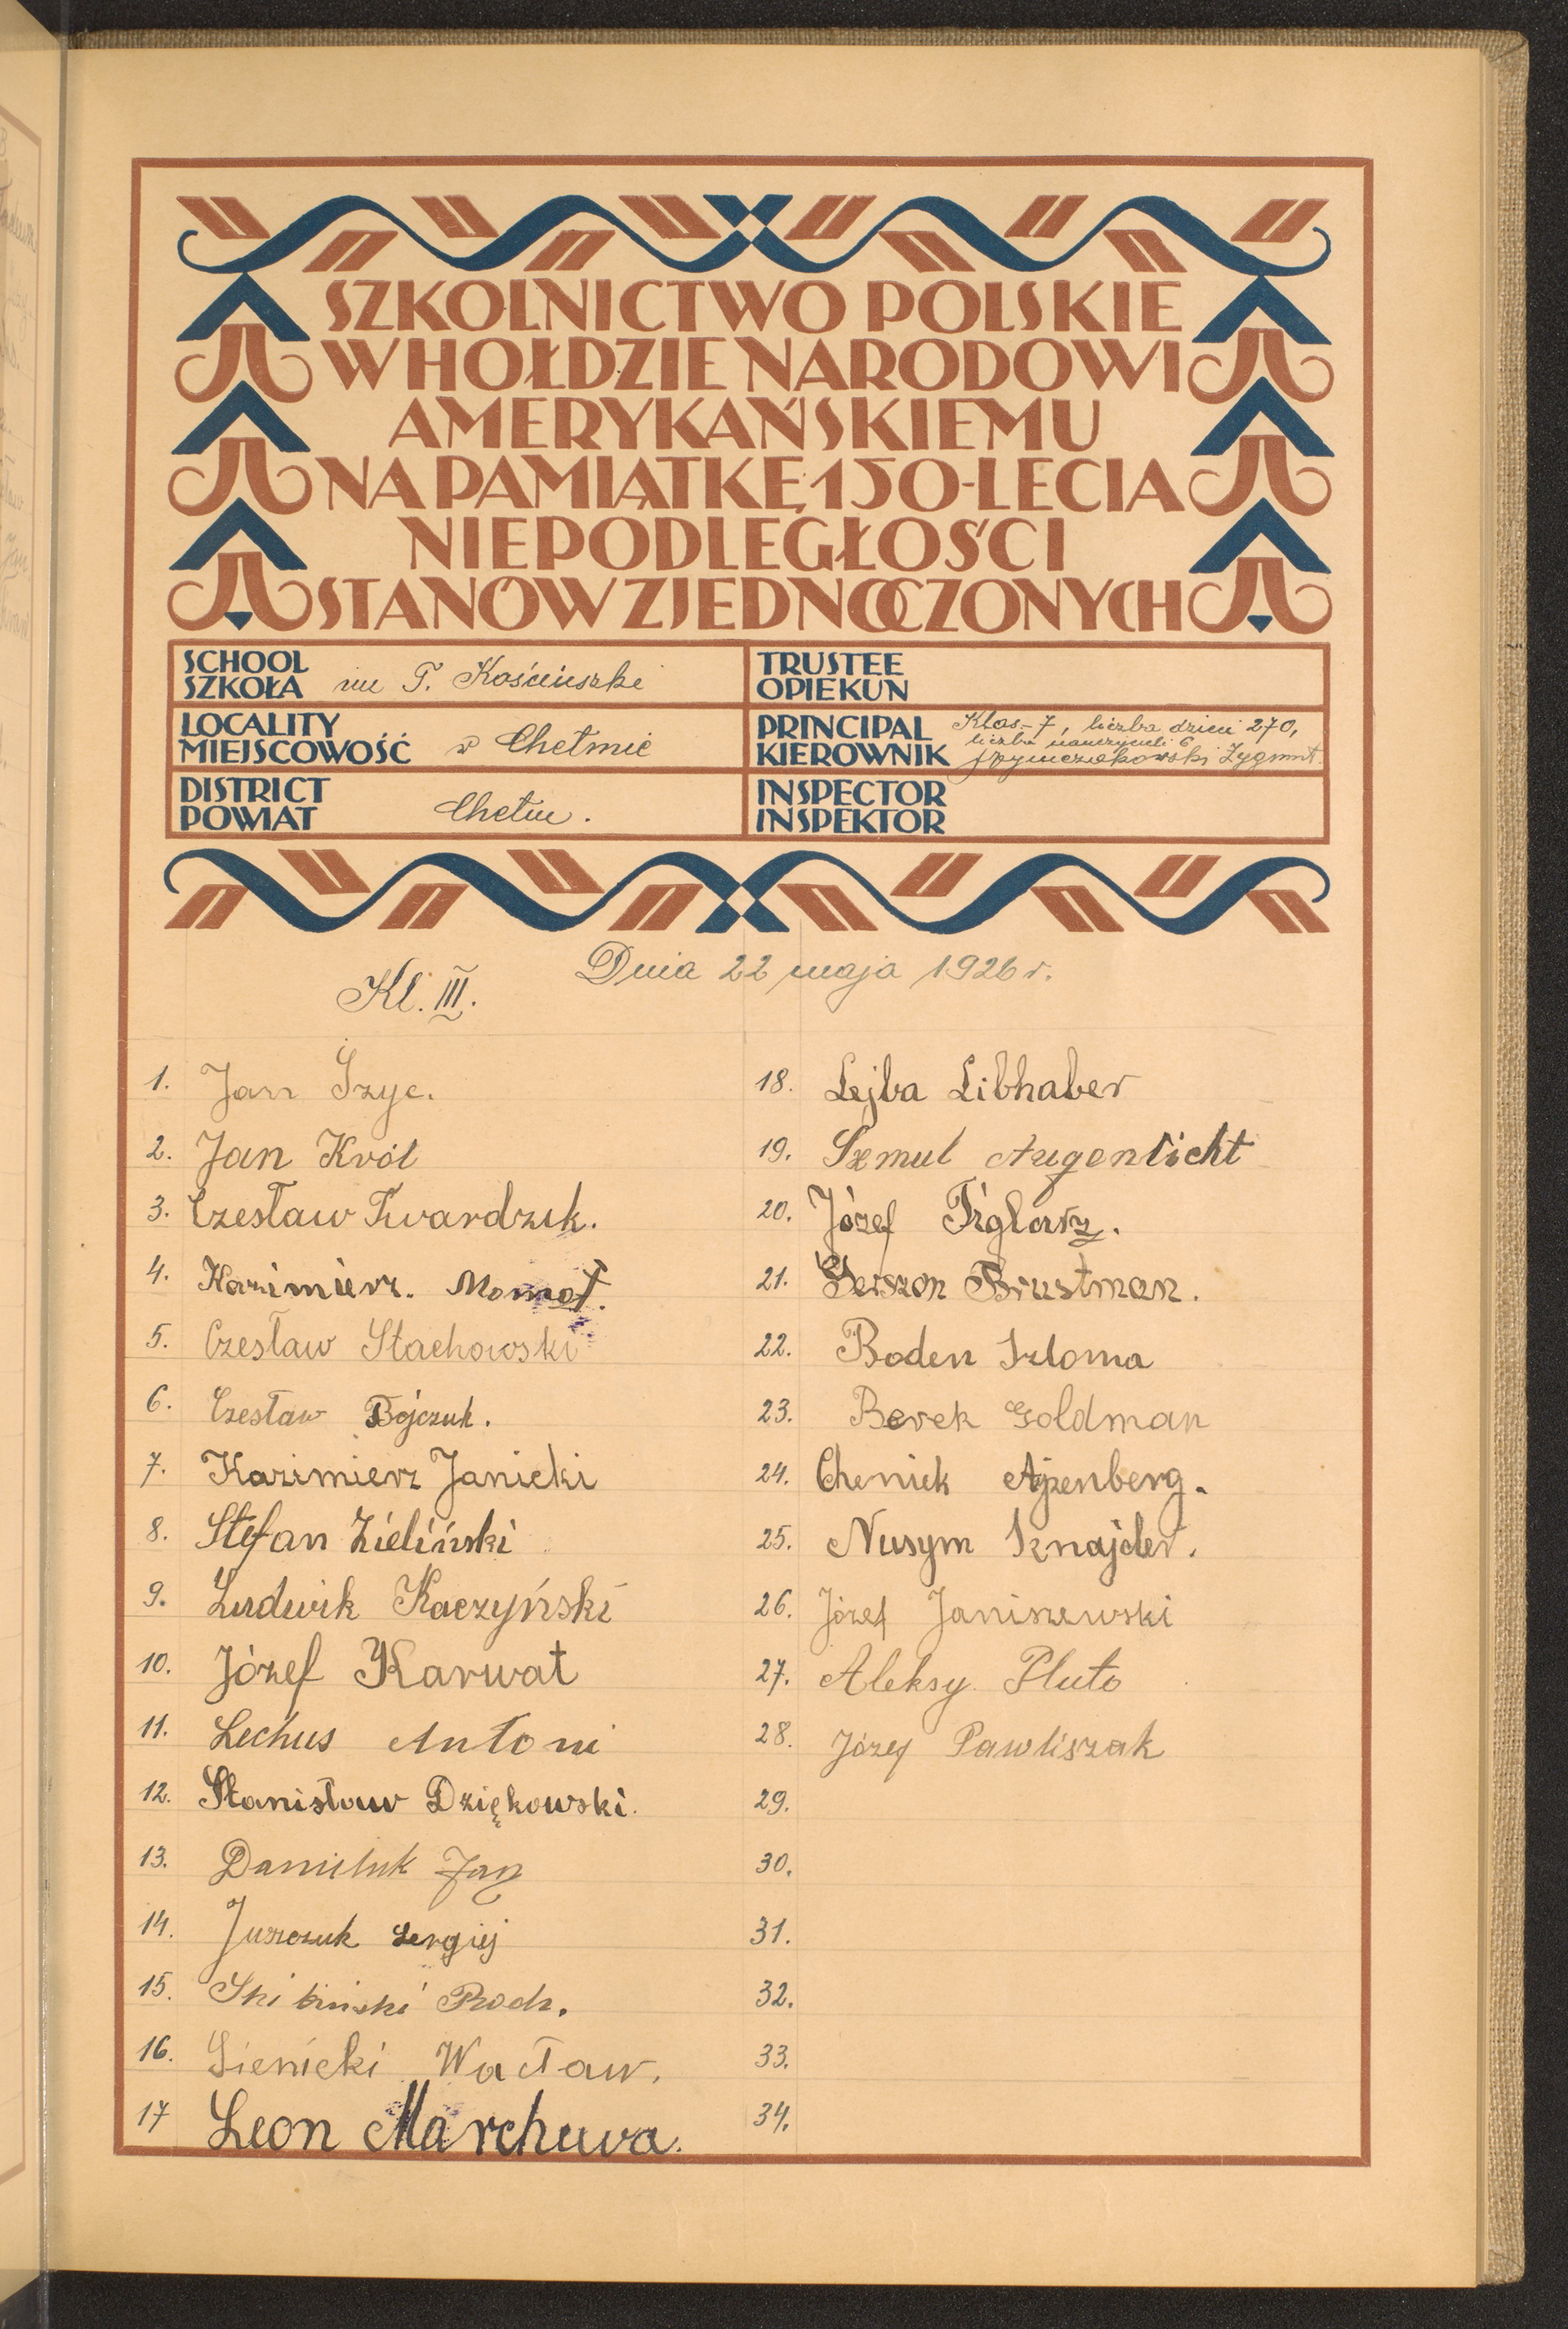 SZKOLNICTWO POLSKIE
W HOŁDZIE NARODOWI
AMERYKAŃSKIEMU
NA PAMIĄTKĘ 150-LECIA
NIEPODLEGŁOŚCI
STANÓW ZJEDNOCZONYCH
SCHOOL
SZKOŁA im T. Kościuszki
LOCALITY
MIEJSCOWOŚĆ w Chełmie
DISTRICT
POWIAT Chełm.
TRUSTEE
OPIEKUN
PRINCIPAL Klas-7, liczba dzieci 270,
KIEROWNIK liczba nauczycieli 6
Zygmunt
INSPECTOR
INSPEKTOR
Dnia 22 maja 1926 r.
Kl. III.
1. Jan Szyc.
2. Jan Król
3. Czesław Twardzik.
4. Kazimierz. Momot.
5. Czesław Stachowski
6. Czesław Bójczuk.
7. Kazimierz Janicki
8. Stefan Zieliński
9. Ludwik Kaczyński
10. Józef Karwat
11. Lechus Antoni
12. Stanisław Dziękowski.
13. Daniluk Jan
14. Juszczuk Sergiej
15. Skibiński Rodz.
16. Sienicki Wacław.
17 Leon Marchewa.
18. Lejba Libhaber
19. Szmul Augenlicht
20. Józef Figlarz.
21. Gerszon Brustman.
22. Boden Szloma
23. Berek Goldman
24. Cheniek Ajzenberg.
25. Nusym Sznajder.
26. Józef Janiszewski
27. Aleksy Pluto
28. Józef Pawliszak
29.
30.
31.
32.
33.
34.